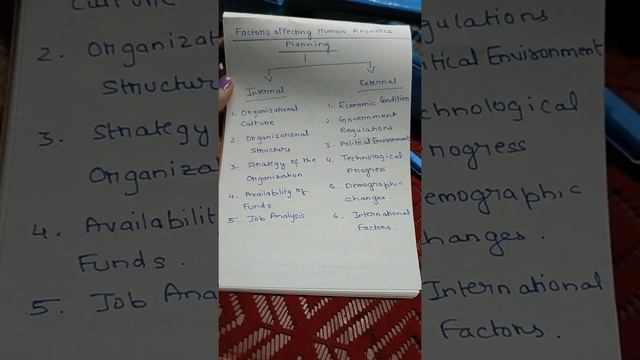 Factors affecting Human Resource
Planning
Internal
1. Organizational
Culture
2. Organizational
Structure
3. Strategy of the
Organization
4. Availability of
Funds.
5. Job Analysis
External
1. Economic Condition
2. Government
Regulations
3. Political Environment
4. Technological
Progress
5. Demographic
changes.
6. International
Factors.
2. Organizat
Structure
3. Strategy
Organizat
4. Availabilit
Funds.
5. Job Ana
gulations
itical Environment
chnological
rogress
emographic
hanges.
International
Factors.